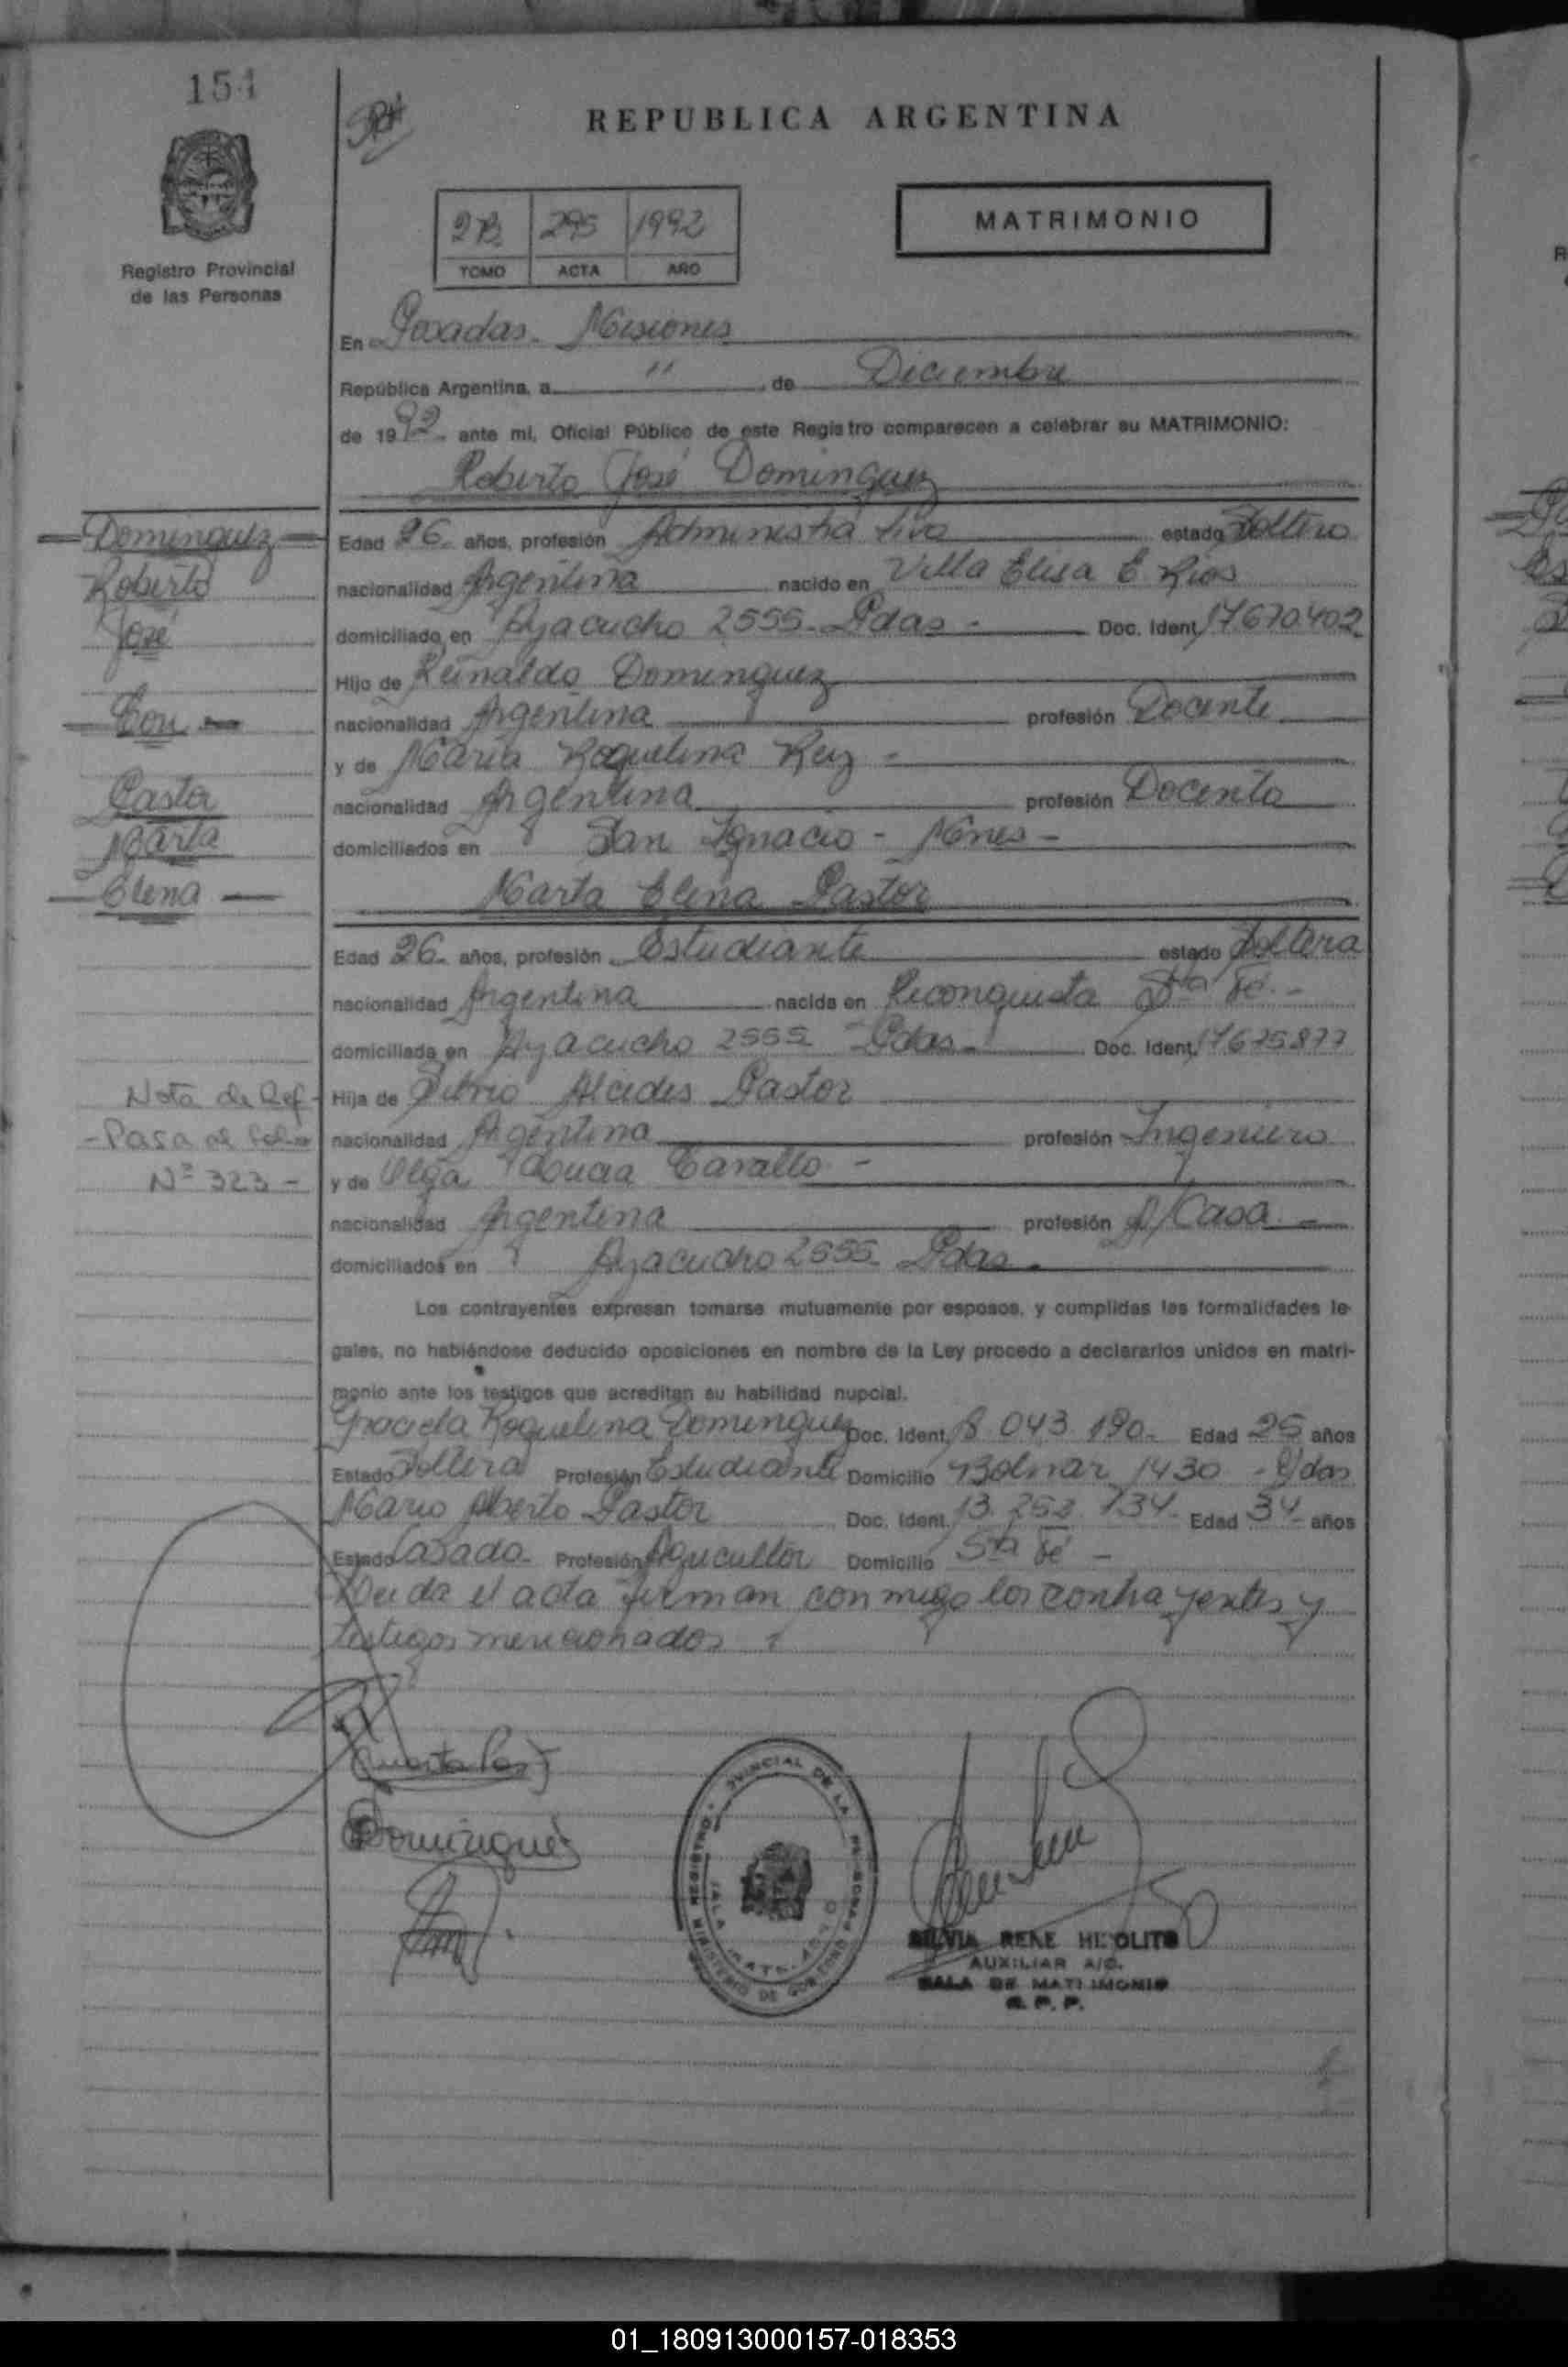 154
REPUBLICA ARGENTINA
MATRIMONIO
2B 295 1992
TOMO ACTA AÑO
Registro Provincial
de las Personas
En Posadas - Misiones
República Argentina, a 11 de Diciembre
de 1992 ante mi, Oficial Público de este Registro comparecen a celebrar su MATRIMONIO:
Roberto José Dominguez
Dominguez
Roberto
José
Con
Pastor
Marta
Elena
Edad 26 años, profesión Administrativo estado Soltero
nacionalidad Argentina nacido en Villa Elisa E. Rios
domiciliado en Ayacucho 2555 - Pdas - Doc. Ident. 17670402
Hijo de Reinaldo Dominguez
nacionalidad Argentina profesión Docente
y de Maria Roquelina Ruiz -
nacionalidad Argentina profesión Docente
domiciliados en San Ignacio - Mnes -
Marta Elena Pastor
Edad 26 años, profesión Estudiante estado Soltera
nacionalidad Argentina nacida en Reconquista Sta Fé -
domiciliada en Ayacucho 2555 - Pdas - Doc. Ident. 17675877
Nota de Ref -
- Pasa al folio
Nº 323 -
Hija de Silvio Alcides Pastor
nacionalidad Argentina profesión Ingeniero
y de Olga Lucia Cavallo -
nacionalidad Argentina profesión A/Casa -
domiciliados en Ayacucho 2555 - Pdas -
Los contrayentes expresan tomarse mutuamente por esposos, y cumplidas las formalidades le-
gales, no habiéndose deducido oposiciones en nombre de la Ley procedo a declararlos unidos en matri-
monio ante los testigos que acreditan su habilidad nupcial.
Graciela Roquelina Dominguez Doc. Ident. 18.043.190 - Edad 25 años
Estado Soltera Profesión Estudiante Domicilio Bolivar 1430 - Pdas
Mario Alberto Pastor Doc. Ident. 13.252.134 - Edad 34 años
Estado Casado - Profesión Agricultor Domicilio Sta Fé -
Leida el acta firman conmigo los contrayentes y
testigos mencionados
Dominguez
SILVIA RENE HIPOLITO
AUXILIAR A/C.
SALA DE MATRIMONIO
R. P. P.
01_180913000157-018353